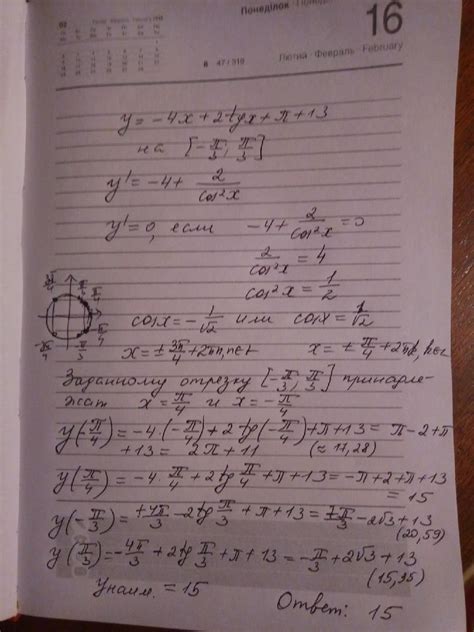 Понеділок
16
8 47/318
Лютий · Февраль · February
y = -4x + 2tgx + π + 13
на [-π/3; π/3]
y' = -4 + 2/cos²x
y' = 0, если -4 + 2/cos²x = 0
2/cos²x = 4
cos²x = 1/2
3π/4 π/3 π/4
-3π/4 -π/3 -π/4
cosx = -1/√2 или cosx = 1/√2
x = ± 3π/4 + 2πn, n∈Z x = ± π/4 + 2πk, k∈Z
Заданному отрезку [-π/3; π/3] принадле-
жат x = π/4 и x = -π/4
y(-π/4) = -4·(-π/4) + 2tg(-π/4) + π + 13 = π - 2 + π
+ 13 = 2π + 11 (≈ 17,28)
y(π/4) = -4·π/4 + 2tgπ/4 + π + 13 = -π + 2 + π + 13
= 15
y(-π/3) = +4π/3 - 2tgπ/3 + π + 13 = 7π/3 - 2√3 + 13
(20,59)
y(π/3) = -4π/3 + 2tgπ/3 + π + 13 = -π/3 + 2√3 + 13
(15,35)
Yнаим. = 15
Ответ: 15